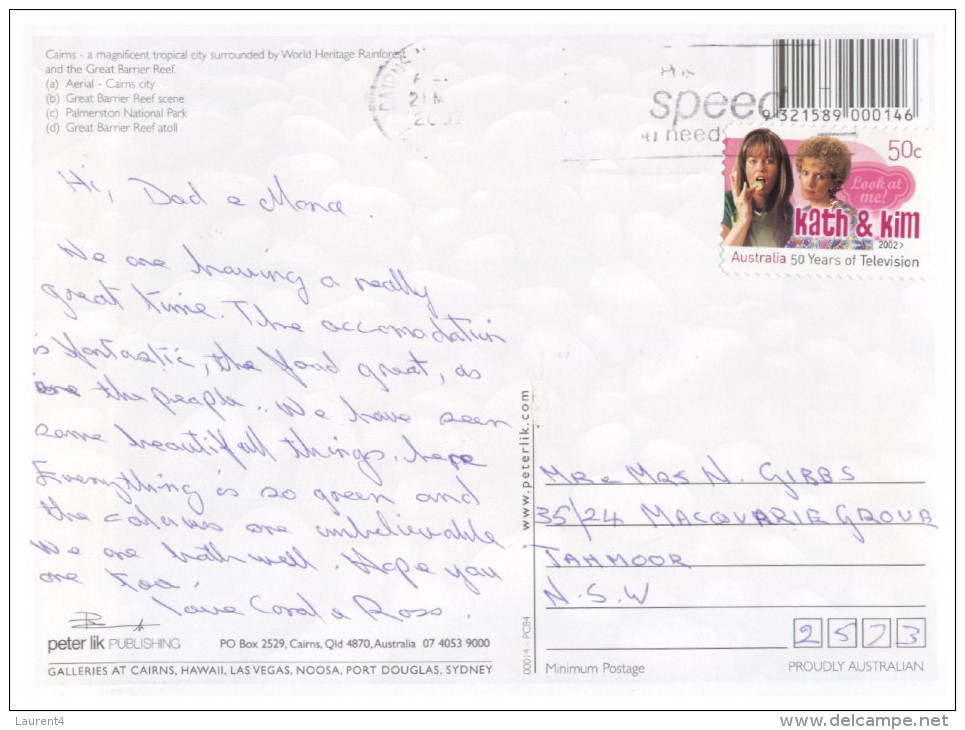 Cairns - a magnificent tropical city surrounded by World Heritage Rainforest
and the Great Barrier Reef.
(a) Aerial - Cairns city
(b) Great Barrier Reef scene
(c) Palmerston National Park
(d) Great Barrier Reef atoll
speed
need
9 321589 000146
50c
Look at
me!
kath & kim
2002>
Australia 50 Years of Television
Hi, Dad &
We are having a really
great time. The accomodation
is fantastic, the food great, as
are the people. We have seen
some beautifull things, here
Everything is so green and
the colours are unbelievable
We are both well. Hope you
are too.
Love Coral & Ross.
peter lik PUBLISHING
PO Box 2529, Cairns, Qld 4870, Australia 07 4053 9000
GALLERIES AT CAIRNS, HAWAII, LAS VEGAS, NOOSA, PORT DOUGLAS, SYDNEY
www.peterlik.com
00014 - PC84
MR & MRS N. GIBBS
35/24 MACQUARIE GROVE
TAHMOOR
N.S.W
2573
Minimum Postage
PROUDLY AUSTRALIAN
Laurent4
www.delcampe.net